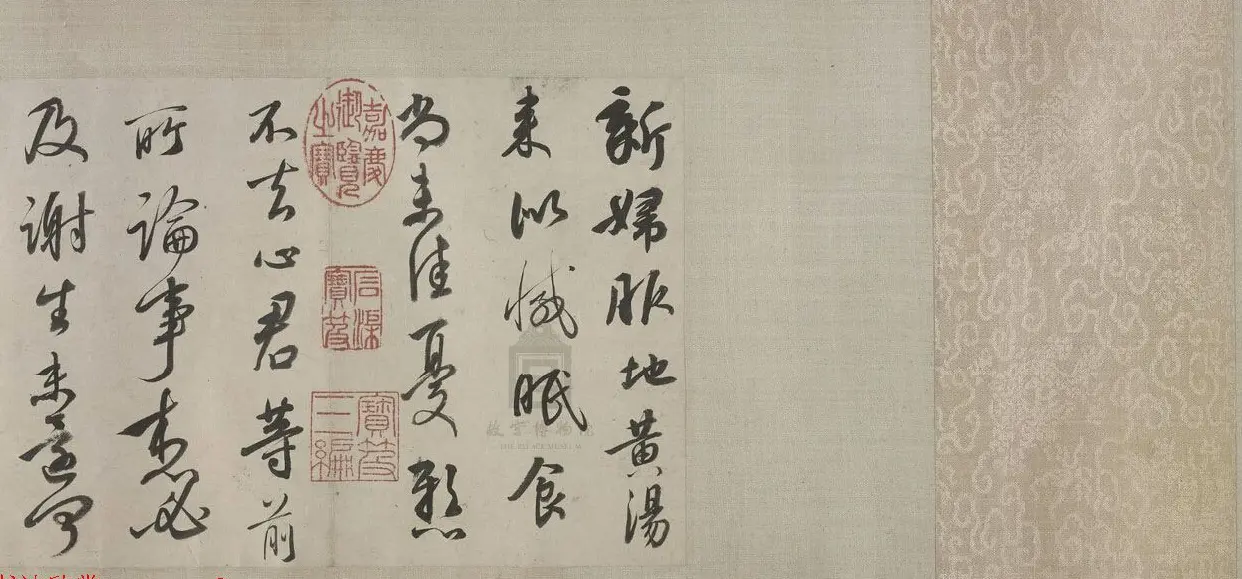 新婦服地黃湯
来似減眠食
尚未佳憂懸
不去心君等前
所論事想必
及謝生未還何
嘉慶御覽之寶
石渠寶笈
寶笈三編
故宮博物院
THE PALACE MUSEUM